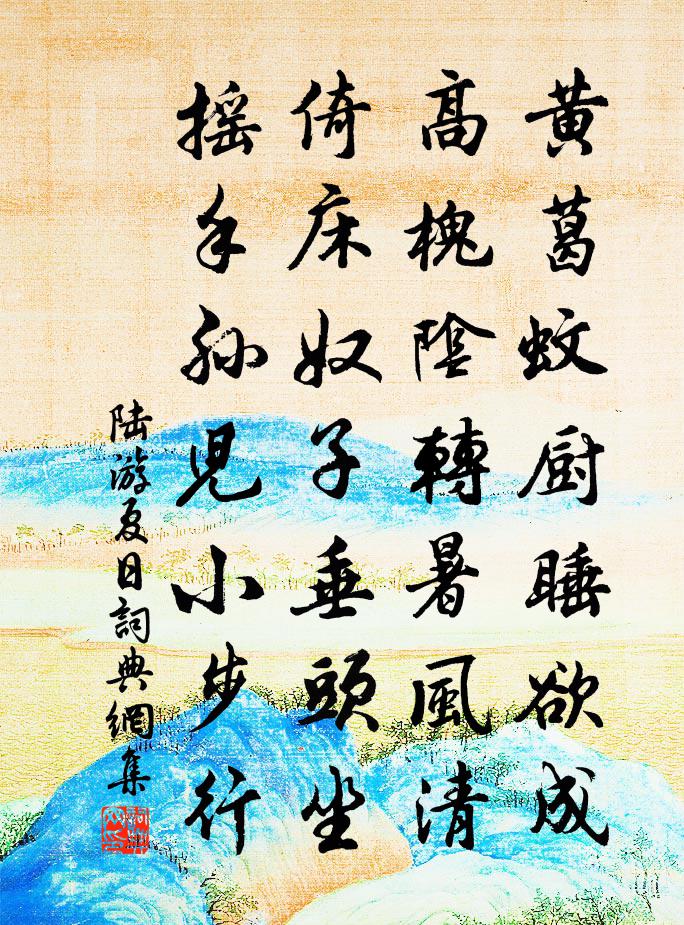 黃葛蚊厨睡欲成
高槐陰轉暑風清
倚床奴子垂頭坐
摇手孙兒小步行
陆游夏日詞典網集